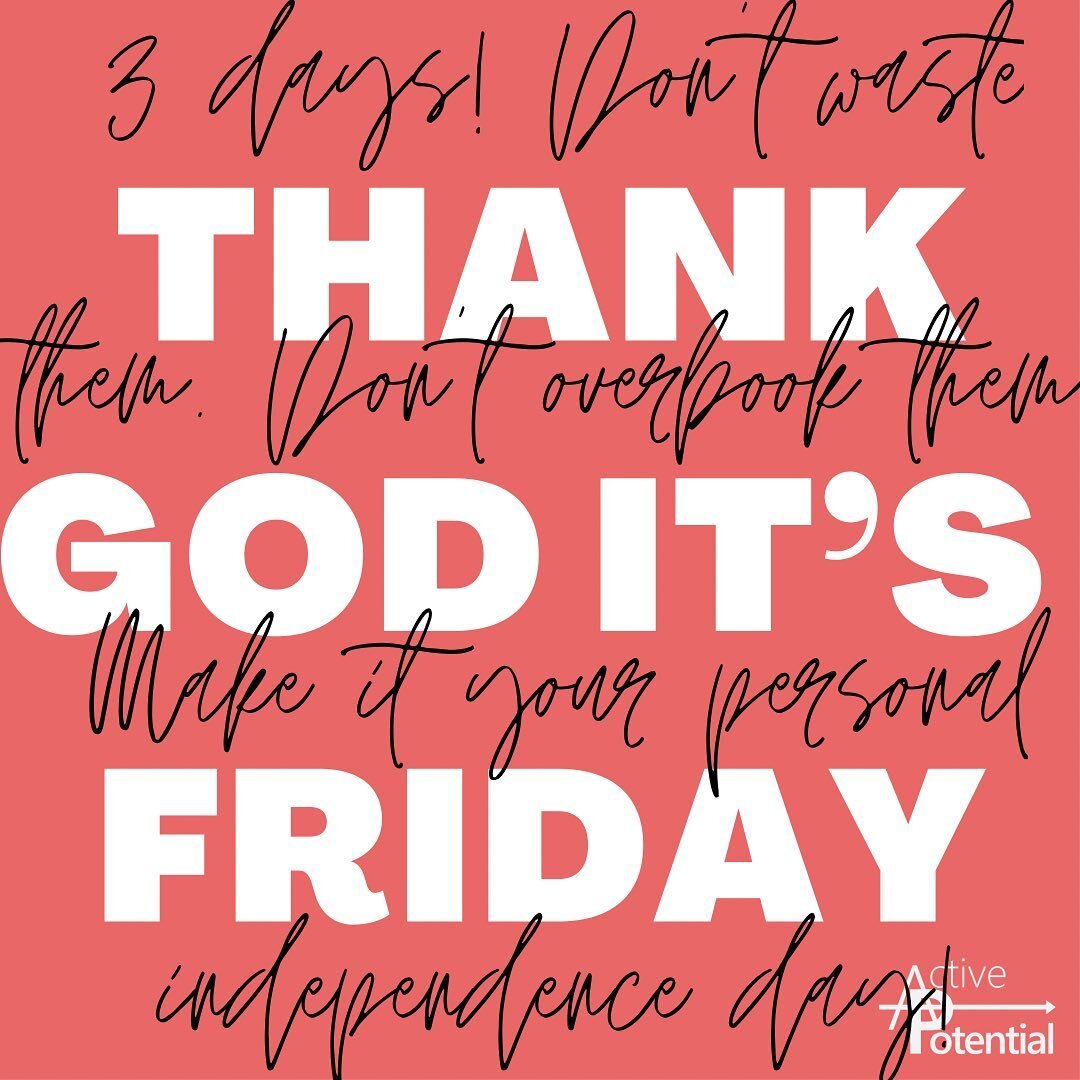 3 days! Don't waste
THANK
them. Don't overbook them
GOD IT'S
Make it your personal
FRIDAY
independence day!
Active
Potential